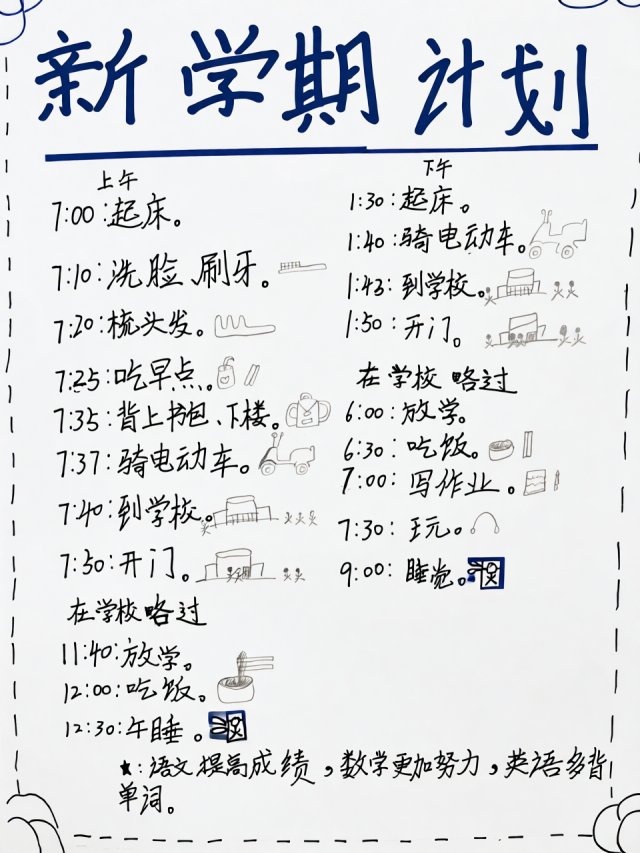 新学期计划
上午
7:00:起床。
7:10:洗脸、刷牙。
7:20:梳头发。
7:25:吃早点。
7:35:背上书包、下楼。
7:37:骑电动车。
7:40:到学校。
7:50:开门。
在学校略过
11:40:放学。
12:00:吃饭。
12:30:午睡。
下午
1:30:起床。
1:40:骑电动车。
1:43:到学校。
1:50:开门。
在学校略过
6:00:放学。
6:30:吃饭。
7:00:写作业。
7:30:玩。
9:00:睡觉。
★:语文提高成绩,数学更加努力,英语多背
单词。